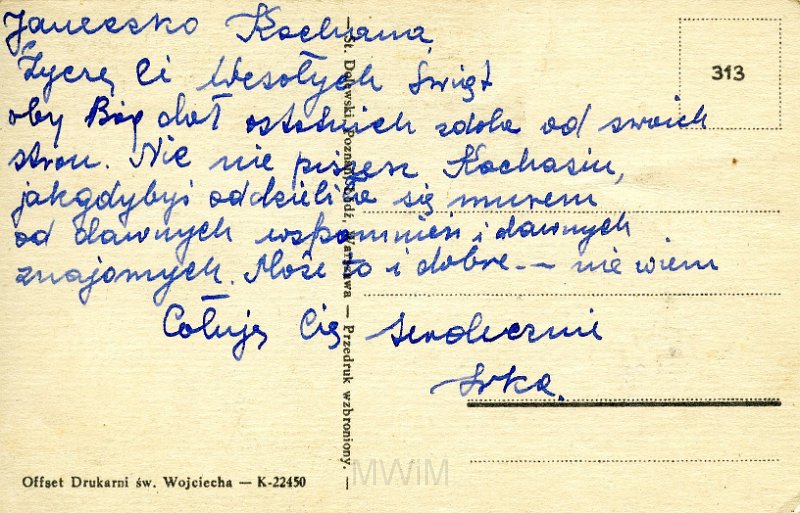 Janeczko Kochana,
Życzę Ci Wesołych Świąt
oby Bóg dał ostatnich zdala od swoich
stron. Nic nie piszesz Kochasiu,
jakgdybyś oddzieliła się murem
od dawnych wspomnień i dawnych
znajomych. Może to i dobre — nie wiem
Całuję Cię serdecznie
313
St. Dolewski, Poznań, Łódź, Warszawa — Przedruk wzbroniony.
Offset Drukarni św. Wojciecha — K-22450
MWiM